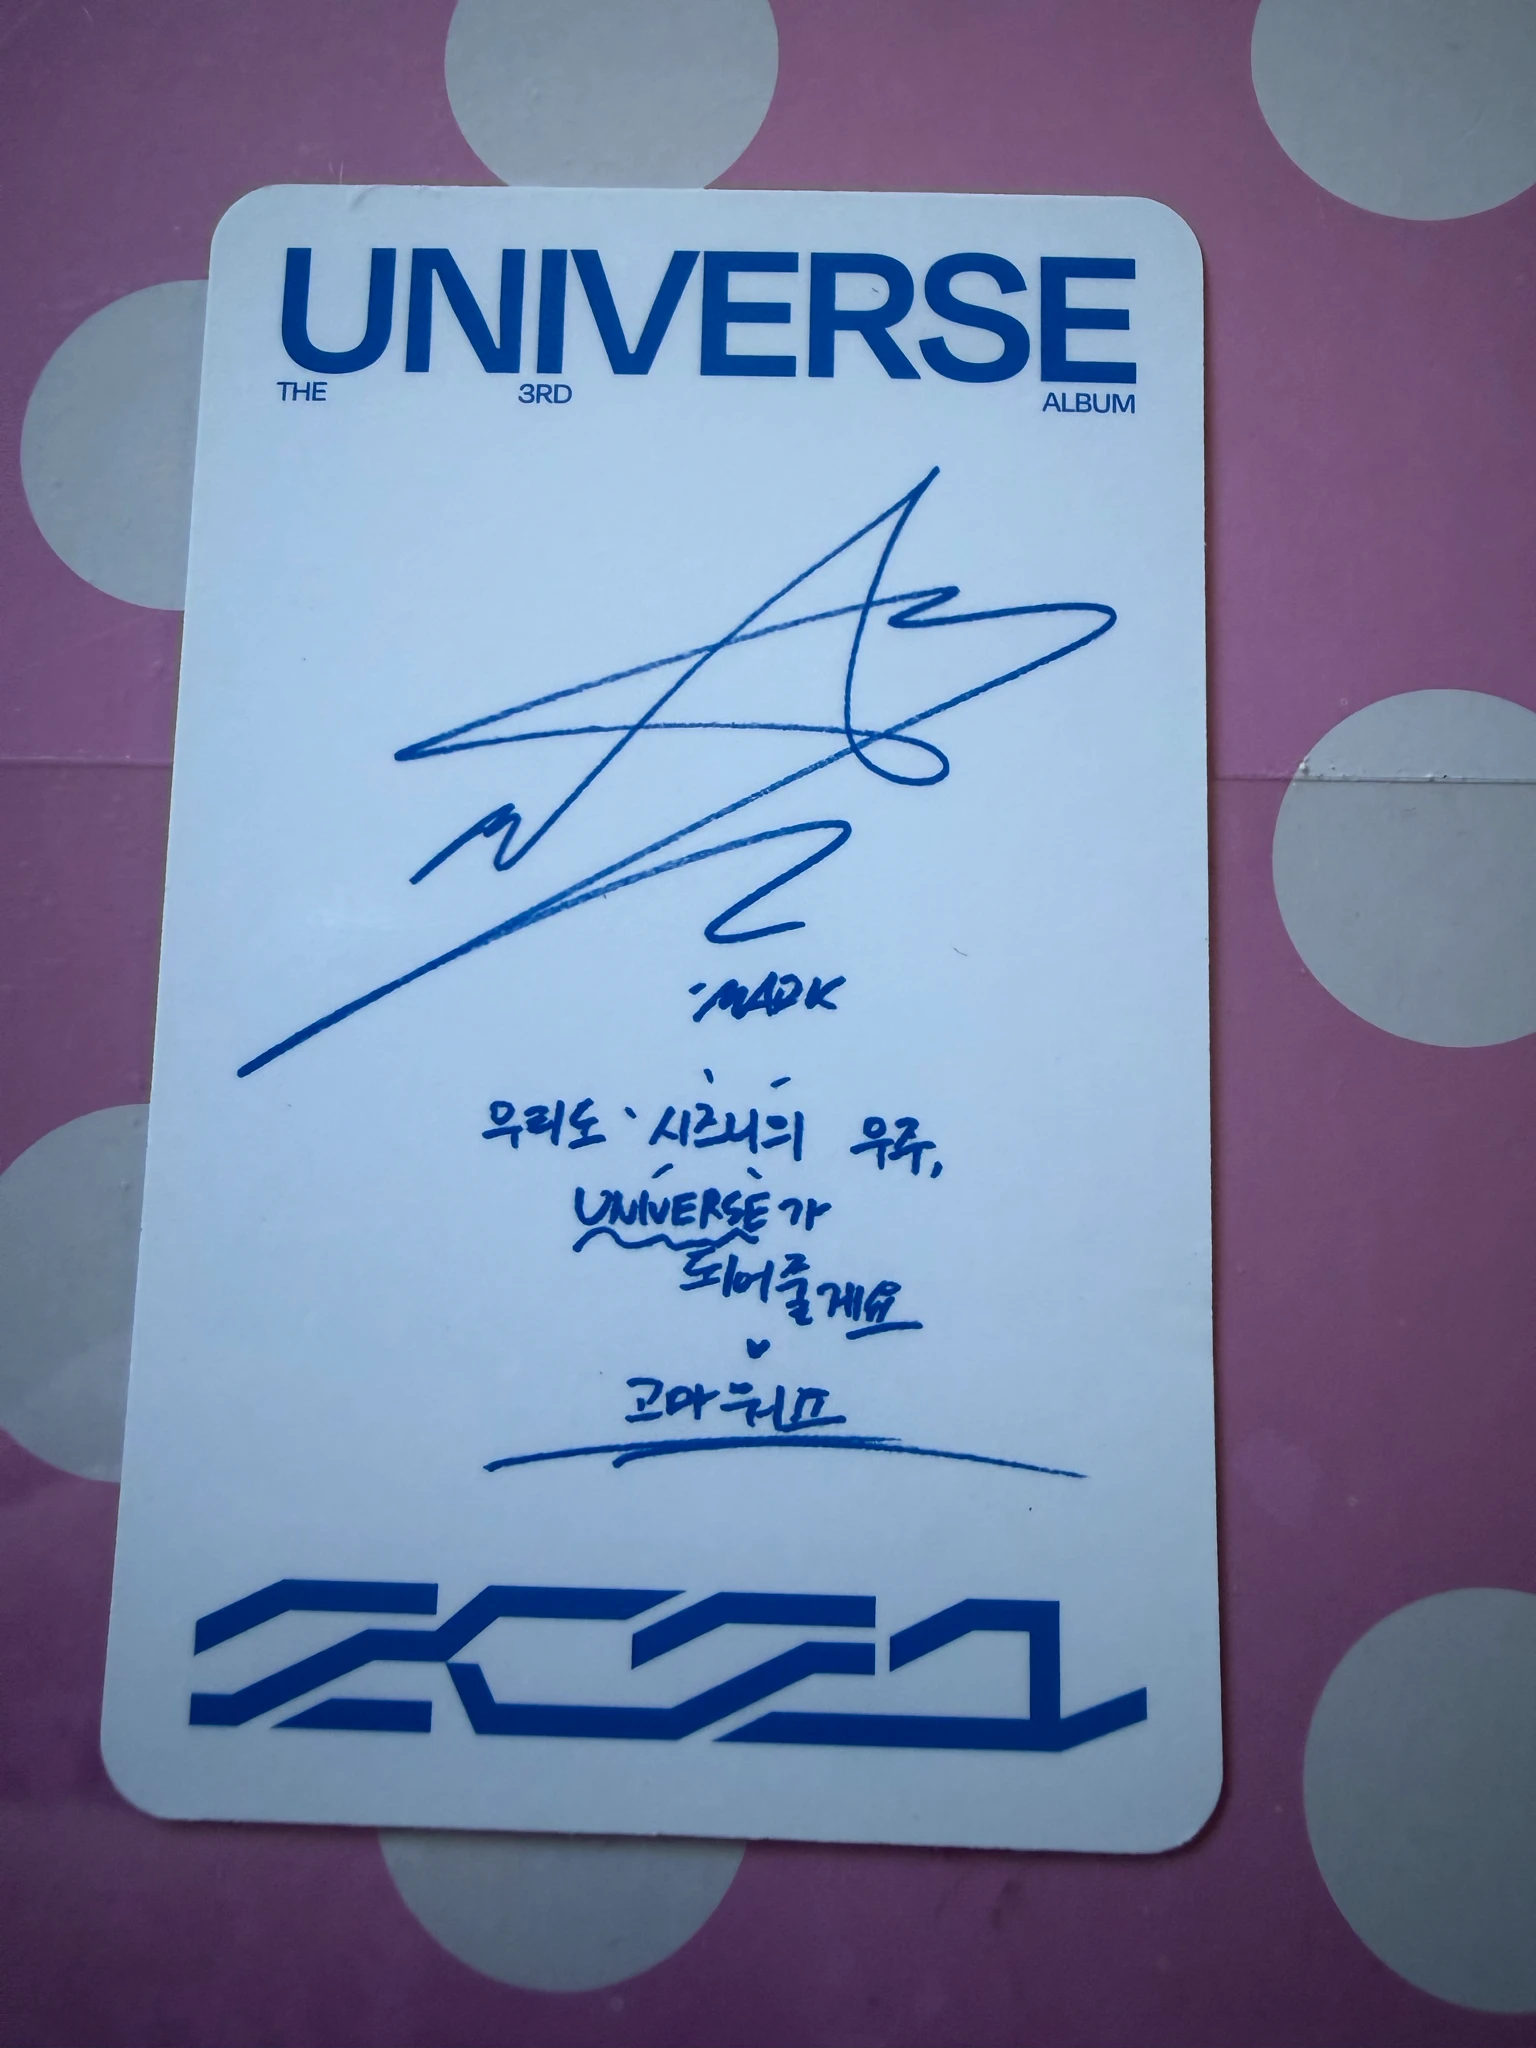 UNIVERSE
THE 3RD ALBUM
-MARK
우리도 시즈니의 우주,
UNIVERSE가
되어줄게요
♥
고마워요
2021